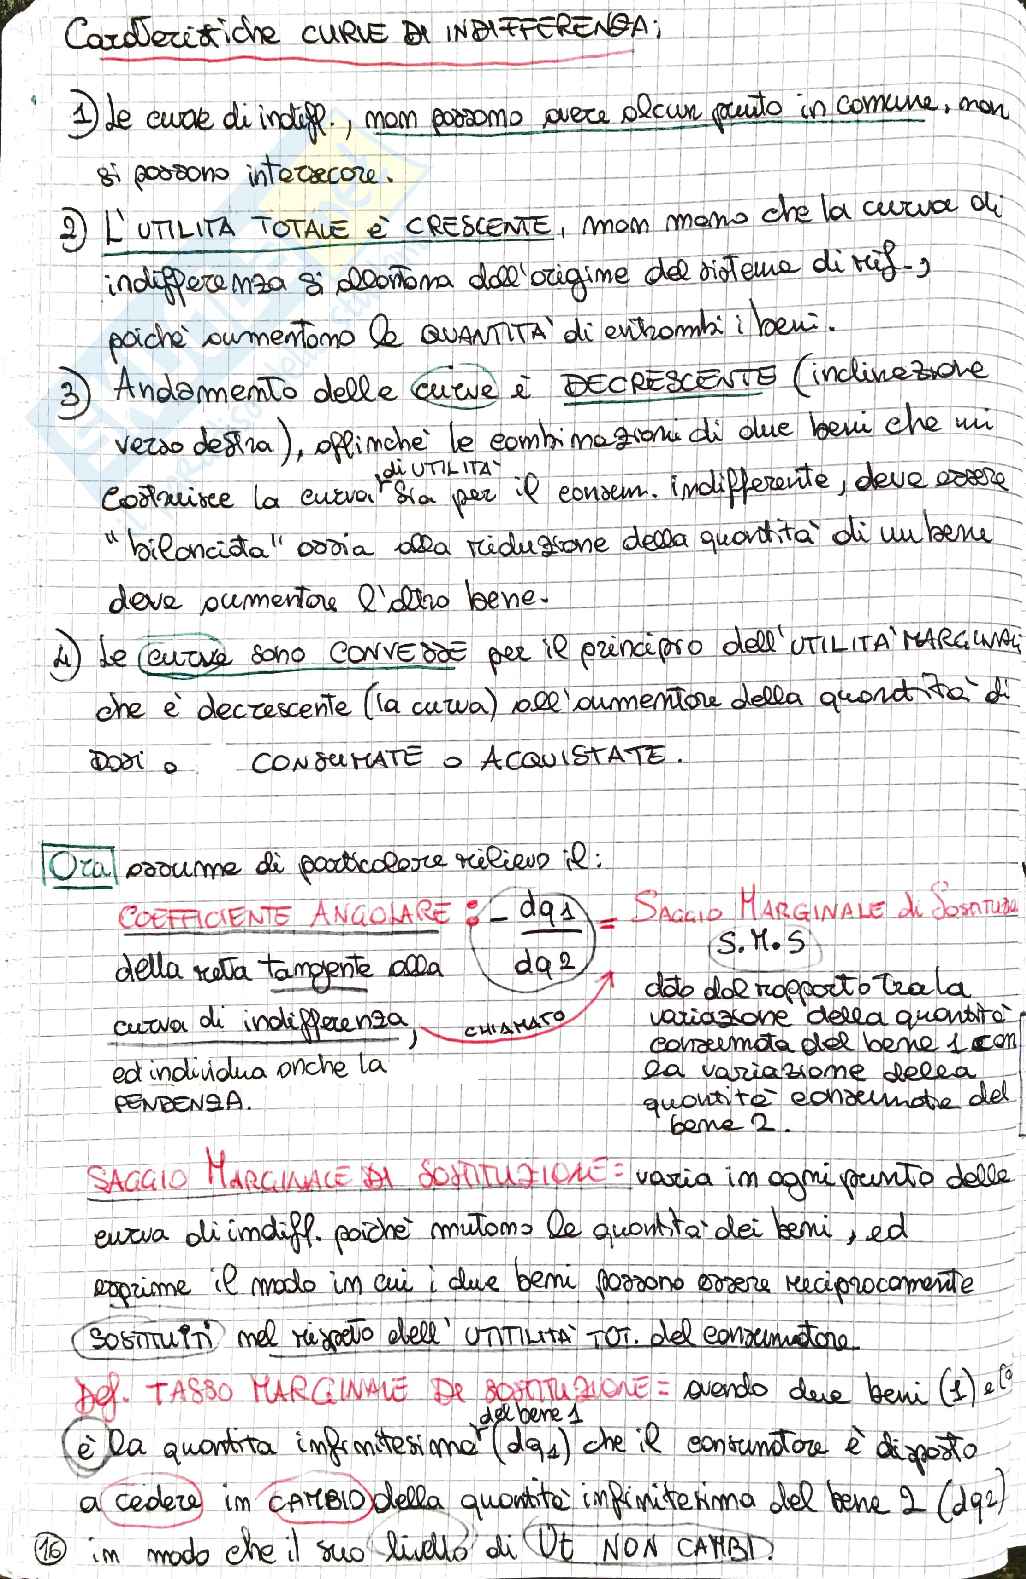 Caratteristiche CURVE DI INDIFFERENZA;
1) Le curve di indiff., non possono avere alcun punto in comune, non
si possono intersecare.
2) L'UTILITÀ TOTALE è CRESCENTE, man mano che la curva di
indifferenza si allontana dall'origine del sistema di rif.,
poichè aumentano le QUANTITÀ di entrambi i beni.
3) Andamento delle curve è DECRESCENTE (inclinazione
verso destra), affinchè le combinazioni di due beni che mi
di UTILITÀ
costruisce la curva sia per il consum. indifferente, deve essere
"bilanciata" ossia alla riduzione della quantità di un bene
deve aumentare l'altro bene.
4) Le curve sono CONVESSE per il principio dell'UTILITÀ MARGINALE
che è decrescente (la curva) all'aumentare della quantità di
DOSI o CONSUMATE o ACQUISTATE.
Ora assume di particolare rilievo il:
COEFFICIENTE ANGOLARE : - dq1 / dq2 = SAGGIO MARGINALE di SOSTITUZ
S.M.S
della retta tangente alla
curva di indifferenza,
CHIAMATO
ed individua anche la
PENDENZA.
dato dal rapporto tra la
variazione della quantità
consumata del bene 1 con
la variazione della
quantità consumata del
bene 2.
SAGGIO MARGINALE DI SOSTITUZIONE = varia in ogni punto delle
curva di indiff. poichè mutano le quantità dei beni, ed
esprime il modo in cui i due beni possono essere reciprocamente
SOSTITUITI nel rispetto dell'UTITILITÀ TOT. del consumatore
Def. TASSO MARGINALE DI SOSTITUZIONE = avendo due beni (1) e
del bene 1
è la quantità infinitesima (dq1) che il consumatore è disposto
a cedere in CAMBIO della quantità infinitesima del bene 2 (dq2)
16 in modo che il suo livello di Ut NON CAMBI.